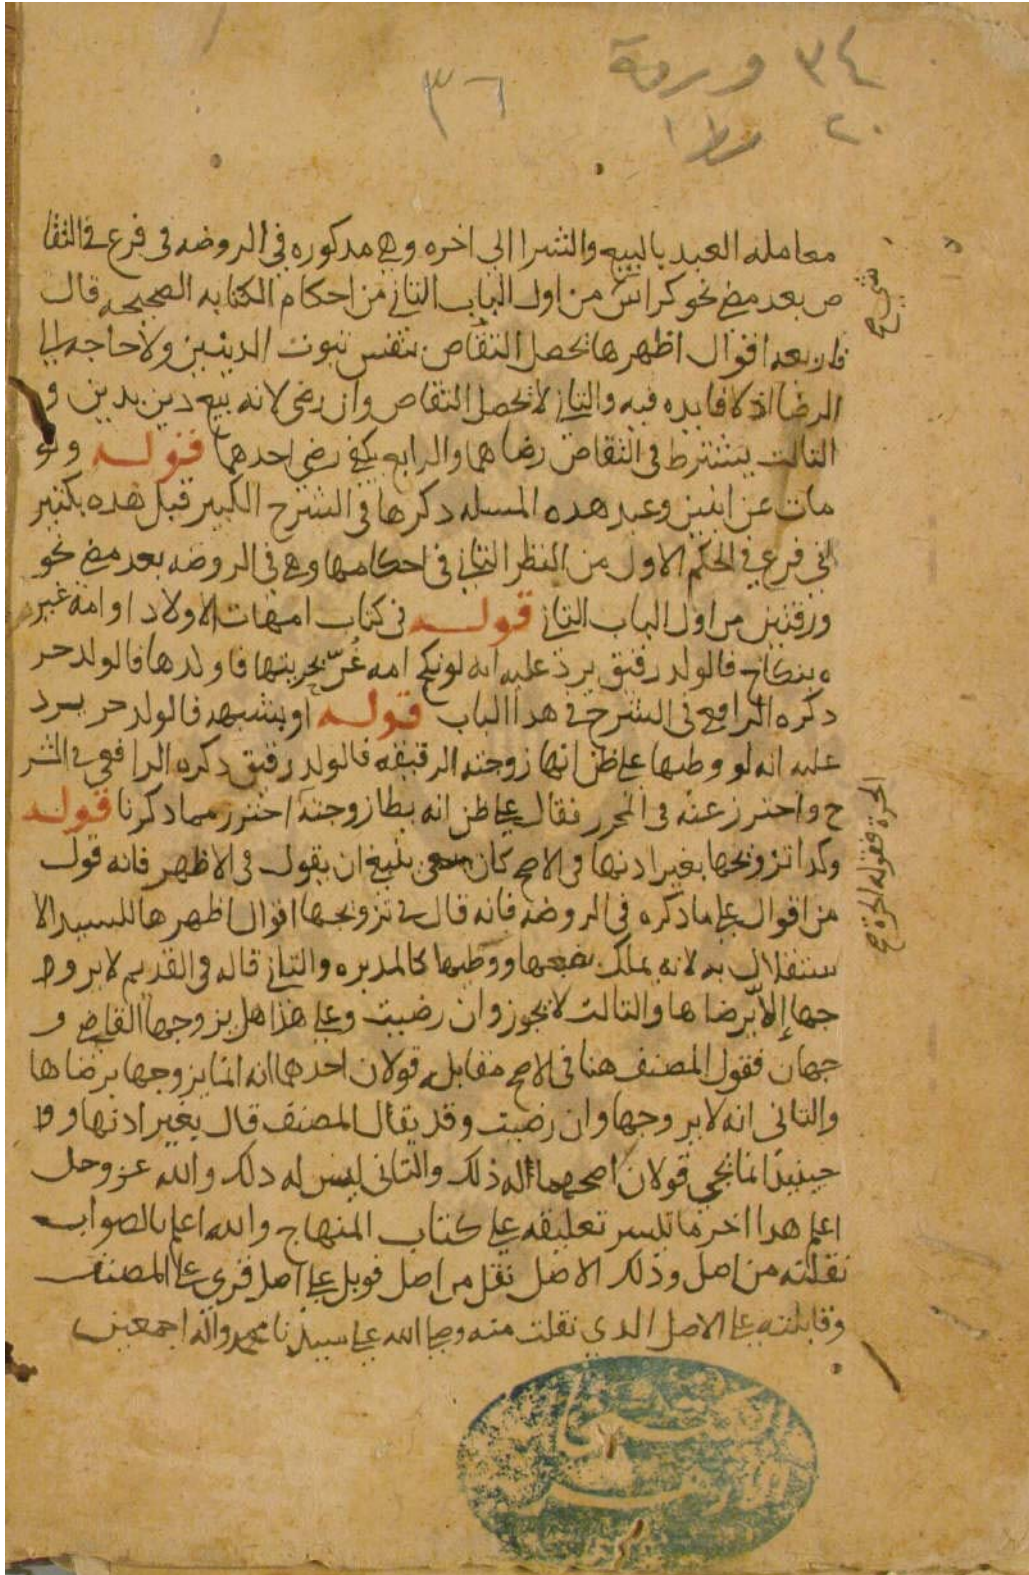 ٣٤ ورقة
٣٦
٢٠
معامله العبد بالبيع والشرا الي اخره وهي مدكوره في الروضه في فرع في التقا
ص بعد مضي نحو كراس من اول الباب الثاني من احكام الكتابه الصحيحه قال
فاربعه اقوال اظهرها يحصل التقاص بنفس ثبوت الدينين ولا حاجه الي
الرضا اذ لا فايده فيه والثاني لا يحصل التقاص وان رضي لانه بيع دين بدين و
الثالث يشترط في التقاص رضاهما والرابع يكفي رضي احدهما قوله ولو
مات عن ابنين وعبد هده المسله دكرها في الشرح الكبير قبل هده بكثير
في فرع في الحكم الاول من النظر الثاني في احكامها وهي في الروضه بعد مضي نحو
ورقتين من اول الباب الثاني قوله في كتاب امهات الاولاد او امة غير
ه بنكاح فالولد رقيق يرد عليه انه لو نكح امه غر بحريتها فاولدها فالولد حر
دكره الرافعي في الشرح في هدا الباب قوله او بشبهه فالولد حر يرد
عليه انه لو وطيها علي ظن انها زوجته الرقيقه فالولد رقيق دكره الرافعي في الشر
ح واحترز عنه في المحرر فقال علي ظن انه يطا زوجته احترز مما دكرنا قوله
وكدا تزويجها بغير ادنها في الاصح كان ينبغي ان يقول في الاظهر فانه قول
من اقوال علي ما دكره في الروضه فانه قال في تزويجها اقوال اظهرها للسيد الا
ستقلال به لانه يملك بضعها ووطيها كالمدبره والثاني قاله في القديم لا يزو
جها إلا برضاها والثالث لا يجوز وان رضيت وعلي هذا هل يزوجها القاضي و
جهان فقول المصنف هنا في الاصح مقابله قولان احدهما انه انما يزوجها برضاها
والثاني انه لا يزوجها وان رضيت وقد يقال المصنف قال بغير ادنها و
حينيذ انما يجي قولان اصحهما له ذلك والثاني ليس له دلك والله عز وجل
اعلم هدا اخر ما تيسر تعليقه علي كتاب المنهاج والله اعلم بالصواب
نقلته من اصل وذلك الاصل نقل من اصل قوبل علي اصل قري علي المصنف
وقابلته علي الاصل الدي نقلت منه وصلي الله علي سيدنا محمد واله اجمعين
الحرة فقوله الحرة صح